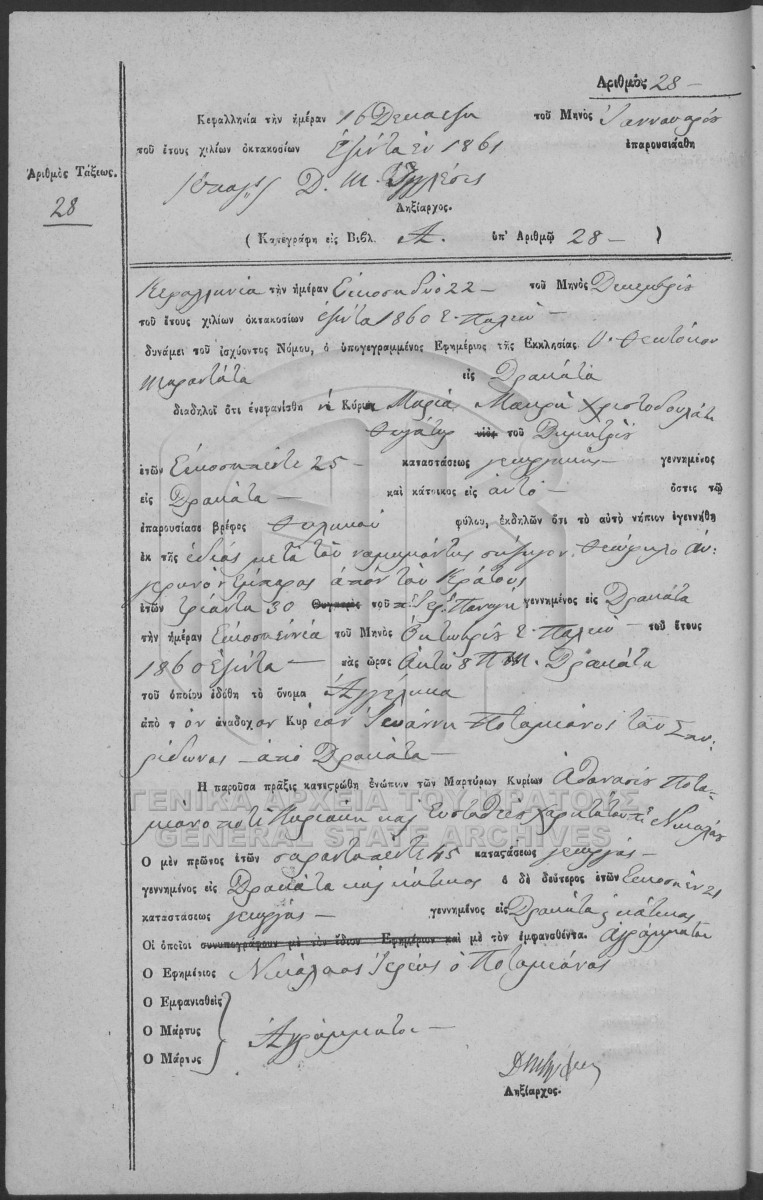 Αριθμός 28 –
Κεφαλληνία τὴν ἡμέραν 16 Δεκαεξη τοῦ Μηνὸς Ἰαννουαρίου
τοῦ ἔτους χιλίων ὀκτακοσίων ἑξῆντα ἕν 1861 ἐπαρουσιάσθη
Ἀριθμὸς Τάξεως.
28
Δ. Μ. Ἰγγλέσις
Ληξίαρχος.
( Κατεγράφη εἰς Βιβλ. Α. ὑπ' Ἀριθμῷ 28 – )
Κεφαλληνία τὴν ἡμέραν Εἰκοσηδύο 22 – τοῦ Μηνὸς Δεκεμβρίου
τοῦ ἔτους χιλίων ὀκτακοσίων ἑξῆντα 1860 Ε. Παλεὸ –
δυνάμει τοῦ ἰσχύοντος Νόμου, ὁ ὑπογεγραμμένος Ἐφημέριος τῆς Ἐκκλησίας Υ. Θεωτόκου
Μαραντάτα εἰς Δρακάτα
διαδηλοῖ ὅτι ἐνεφανίσθη ἡ Κύρια Μαρία Μακρῆ Χριστοδουλάτου
θηγάτηρ υἱὸς τοῦ Δημητρίου
ἐτῶν Εἰκοσηπέντε 25 – καταστάσεως γεωργικῆς – γεννημένος
εἰς Δρακάτα – καὶ κάτοικος εἰς αὐτό – ὅστις τῷ
ἐπαρουσίασε βρέφος θηλικοῦ φύλου, ἐκδηλῶν ὅτι τὸ αὐτὸ νήπιον ἐγεννήθη
ἐκ τῆς ἐδίας μετὰ τοῦ νομημόντης σηζήγον.
ἀπὸν τοῦ Κράτους
ἐτῶν τριάντα 30 Θυγατρὸς τοῦ π. Γερ. Παναγῆ γεννημένος εἰς Δρακάτα
τὴν ἡμέραν Εἰκοσηεννία τοῦ Μηνὸς Ὀκτωβρίου Ε. Παλεὸ – τοῦ ἔτους
1860 ἑξῆντα – τὰς ὥρας ὀκτώ 8 Π. Μ. Δρακάτα
τοῦ ὁποίου ἐδόθη τὸ ὄνομα Ἀγγέλικα
ἀπὸ τὸν ἀναδοχον Κυρ Ἰωάννη Ποταμιάνος τοῦ Σπυ-
ρίδωνος – ἀπὸ Δρακάτα –
Ἡ παροῦσα πρᾶξις κατεςρώθη ἐνώπιον τῶν Μαρτύρων Κυρίων Ἀθανασίου Ποτα-
μιάνο ποτὲ Κυριάκη καὶ Ευσταθίου Χαρητάτου π. Νικολάου
Ὁ μὲν πρῶτος ἐτῶν σαρανταπέντε 45 κατας̔άσεως γεωργὸς –
γεννημένος εἰς Δρακάτα καὶ κάτικος ὁ δὲ δεύτερος ἐτῶν Εἰκοσηέν 21
καταστάσεως γεωργὸς – γεννημένος εἰς Δρακάτα κ κάτικος
Οἱ ὁποῖοι συνυπογράφουν μὲ τὸν ἴδιον Ἐφημέριον καὶ μὲ τὸν ἐμφανισθέντα. Ἀγράμματοι
Ὁ Ἐφημέριος Νικόλαος Ἱερεὺς ὁ Ποταμιάνος
Ὁ Ἐμφανισθεὶς
Ὁ Μάρτυς Ἀγράμματοι –
Ὁ Μάρτυς
Ληξίαρχος.
ΓΕΝΙΚΑ ΑΡΧΕΙΑ ΤΟΥ ΚΡΑΤΟΥΣ
GENERAL STATE ARCHIVES